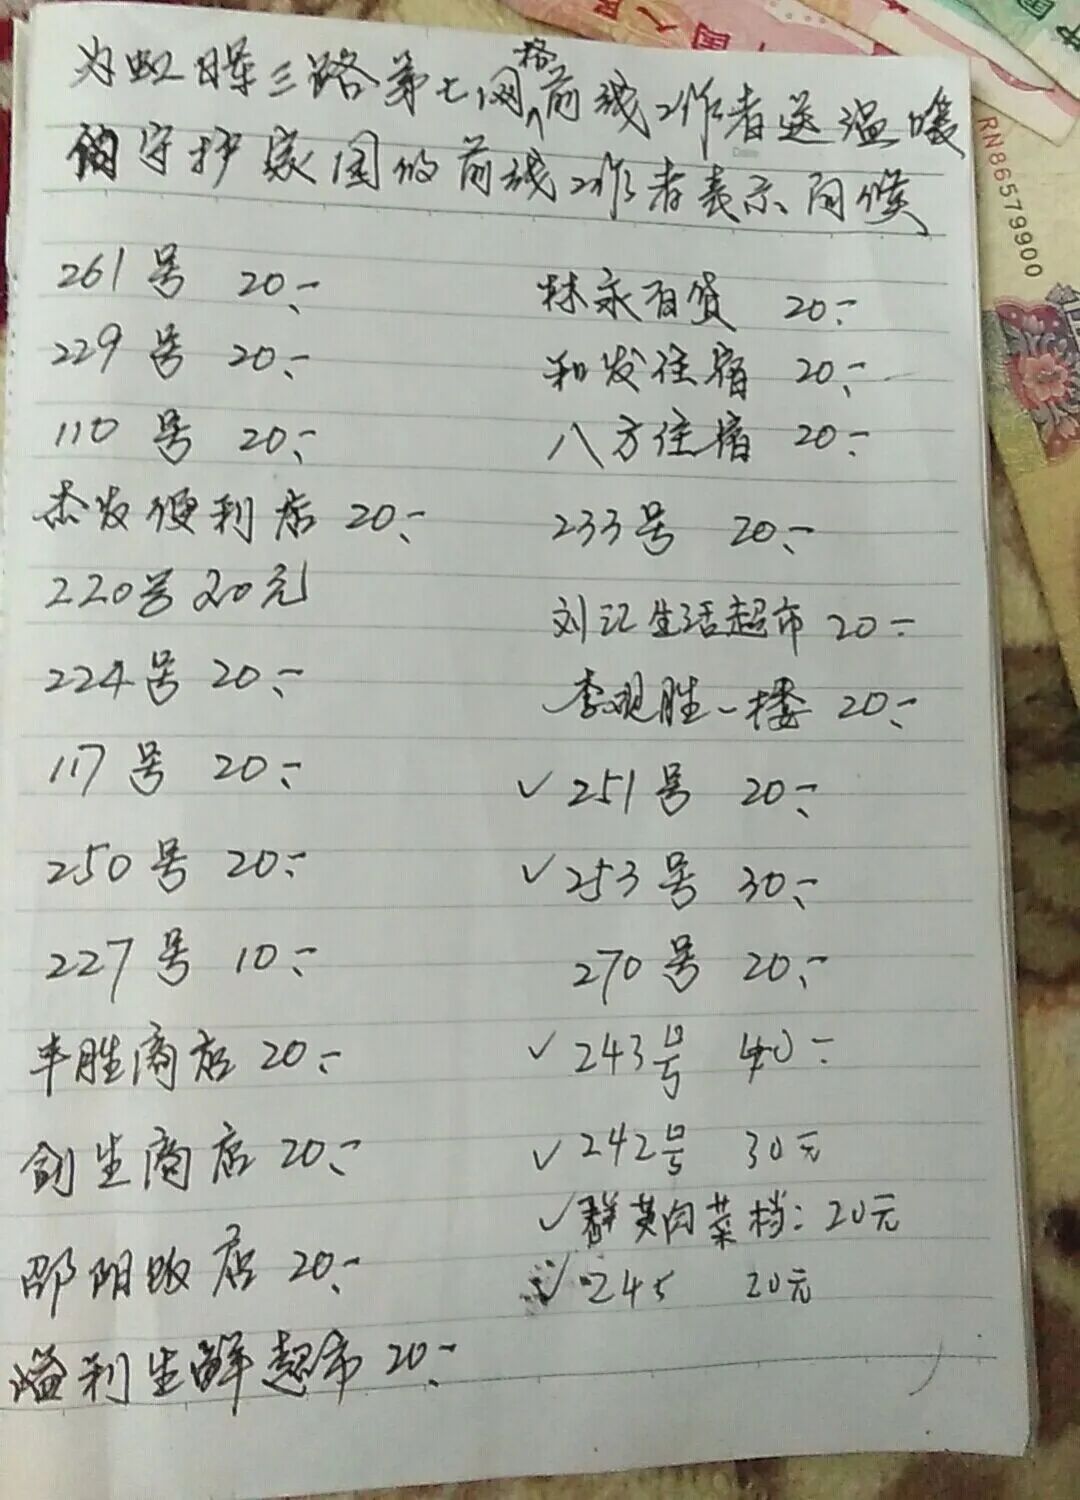 为虹晖三路第七网格前线工作者送温暖
向守护家园的前线工作者表示问候
261号 20.-
229号 20.-
110号 20.-
杰发便利店 20.-
220号 20元
224号 20.-
117号 20.-
250号 20.-
227号 10.-
丰胜商店 20.-
剑生商店 20.-
邵阳饭店 20.-
溢利生鲜超市 20.-
林永百货 20.-
和发住宿 20.-
八方住宿 20.-
233号 20.-
刘记生活超市 20.-
李观胜一楼 20.-
✓251号 20.-
✓253号 30.-
270号 20.-
✓243号 40-
✓242号 30元
✓群英肉菜档: 20元
✓245 20元
RN86579900